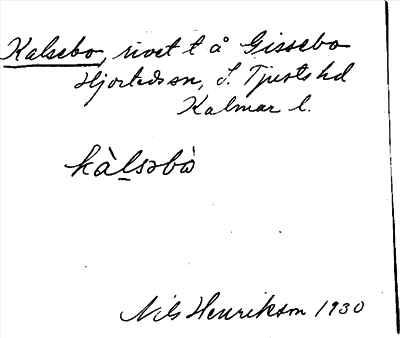 Kalsebo, rivet t å Gissebo
Hjorteds sn, S. Tjusts hd
Kalmar l.
kàlsəbò
Nils Henrikson 1930